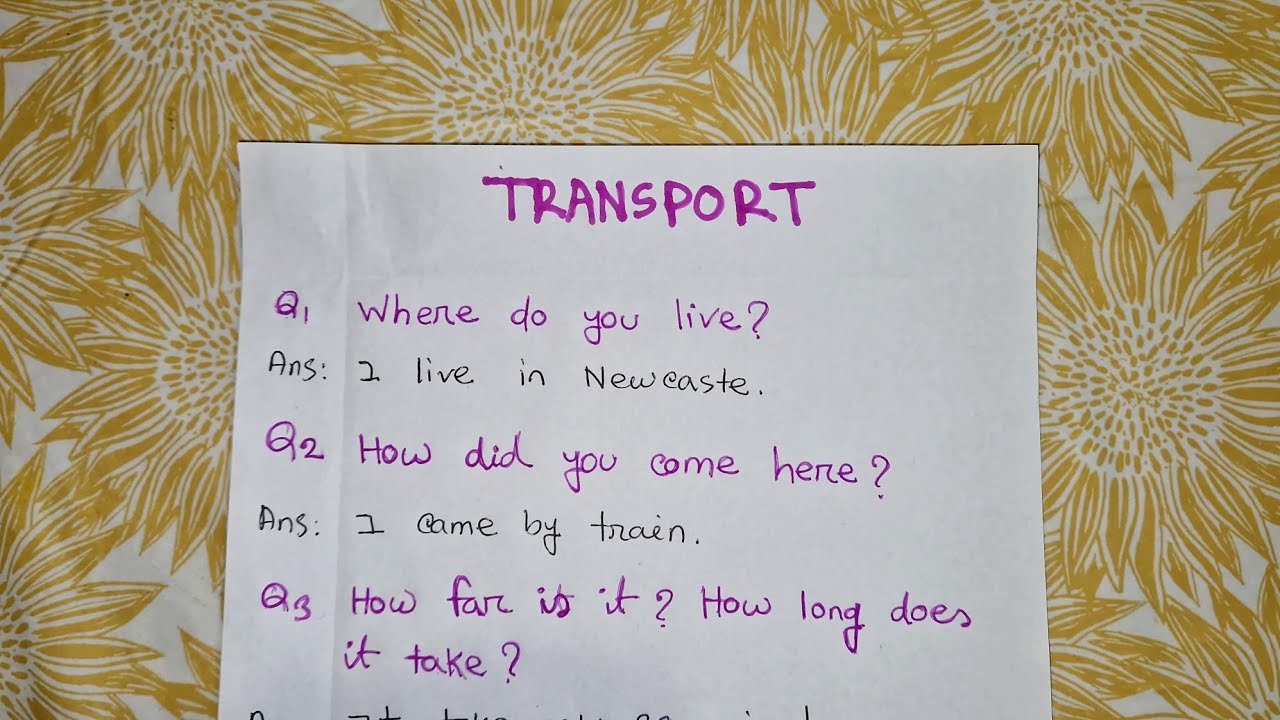 TRANSPORT
Q1 Where do you live?
Ans: I live in Newcaste.
Q2 How did you come here?
Ans: I came by train.
Q3 How far is it? How long does
it take?